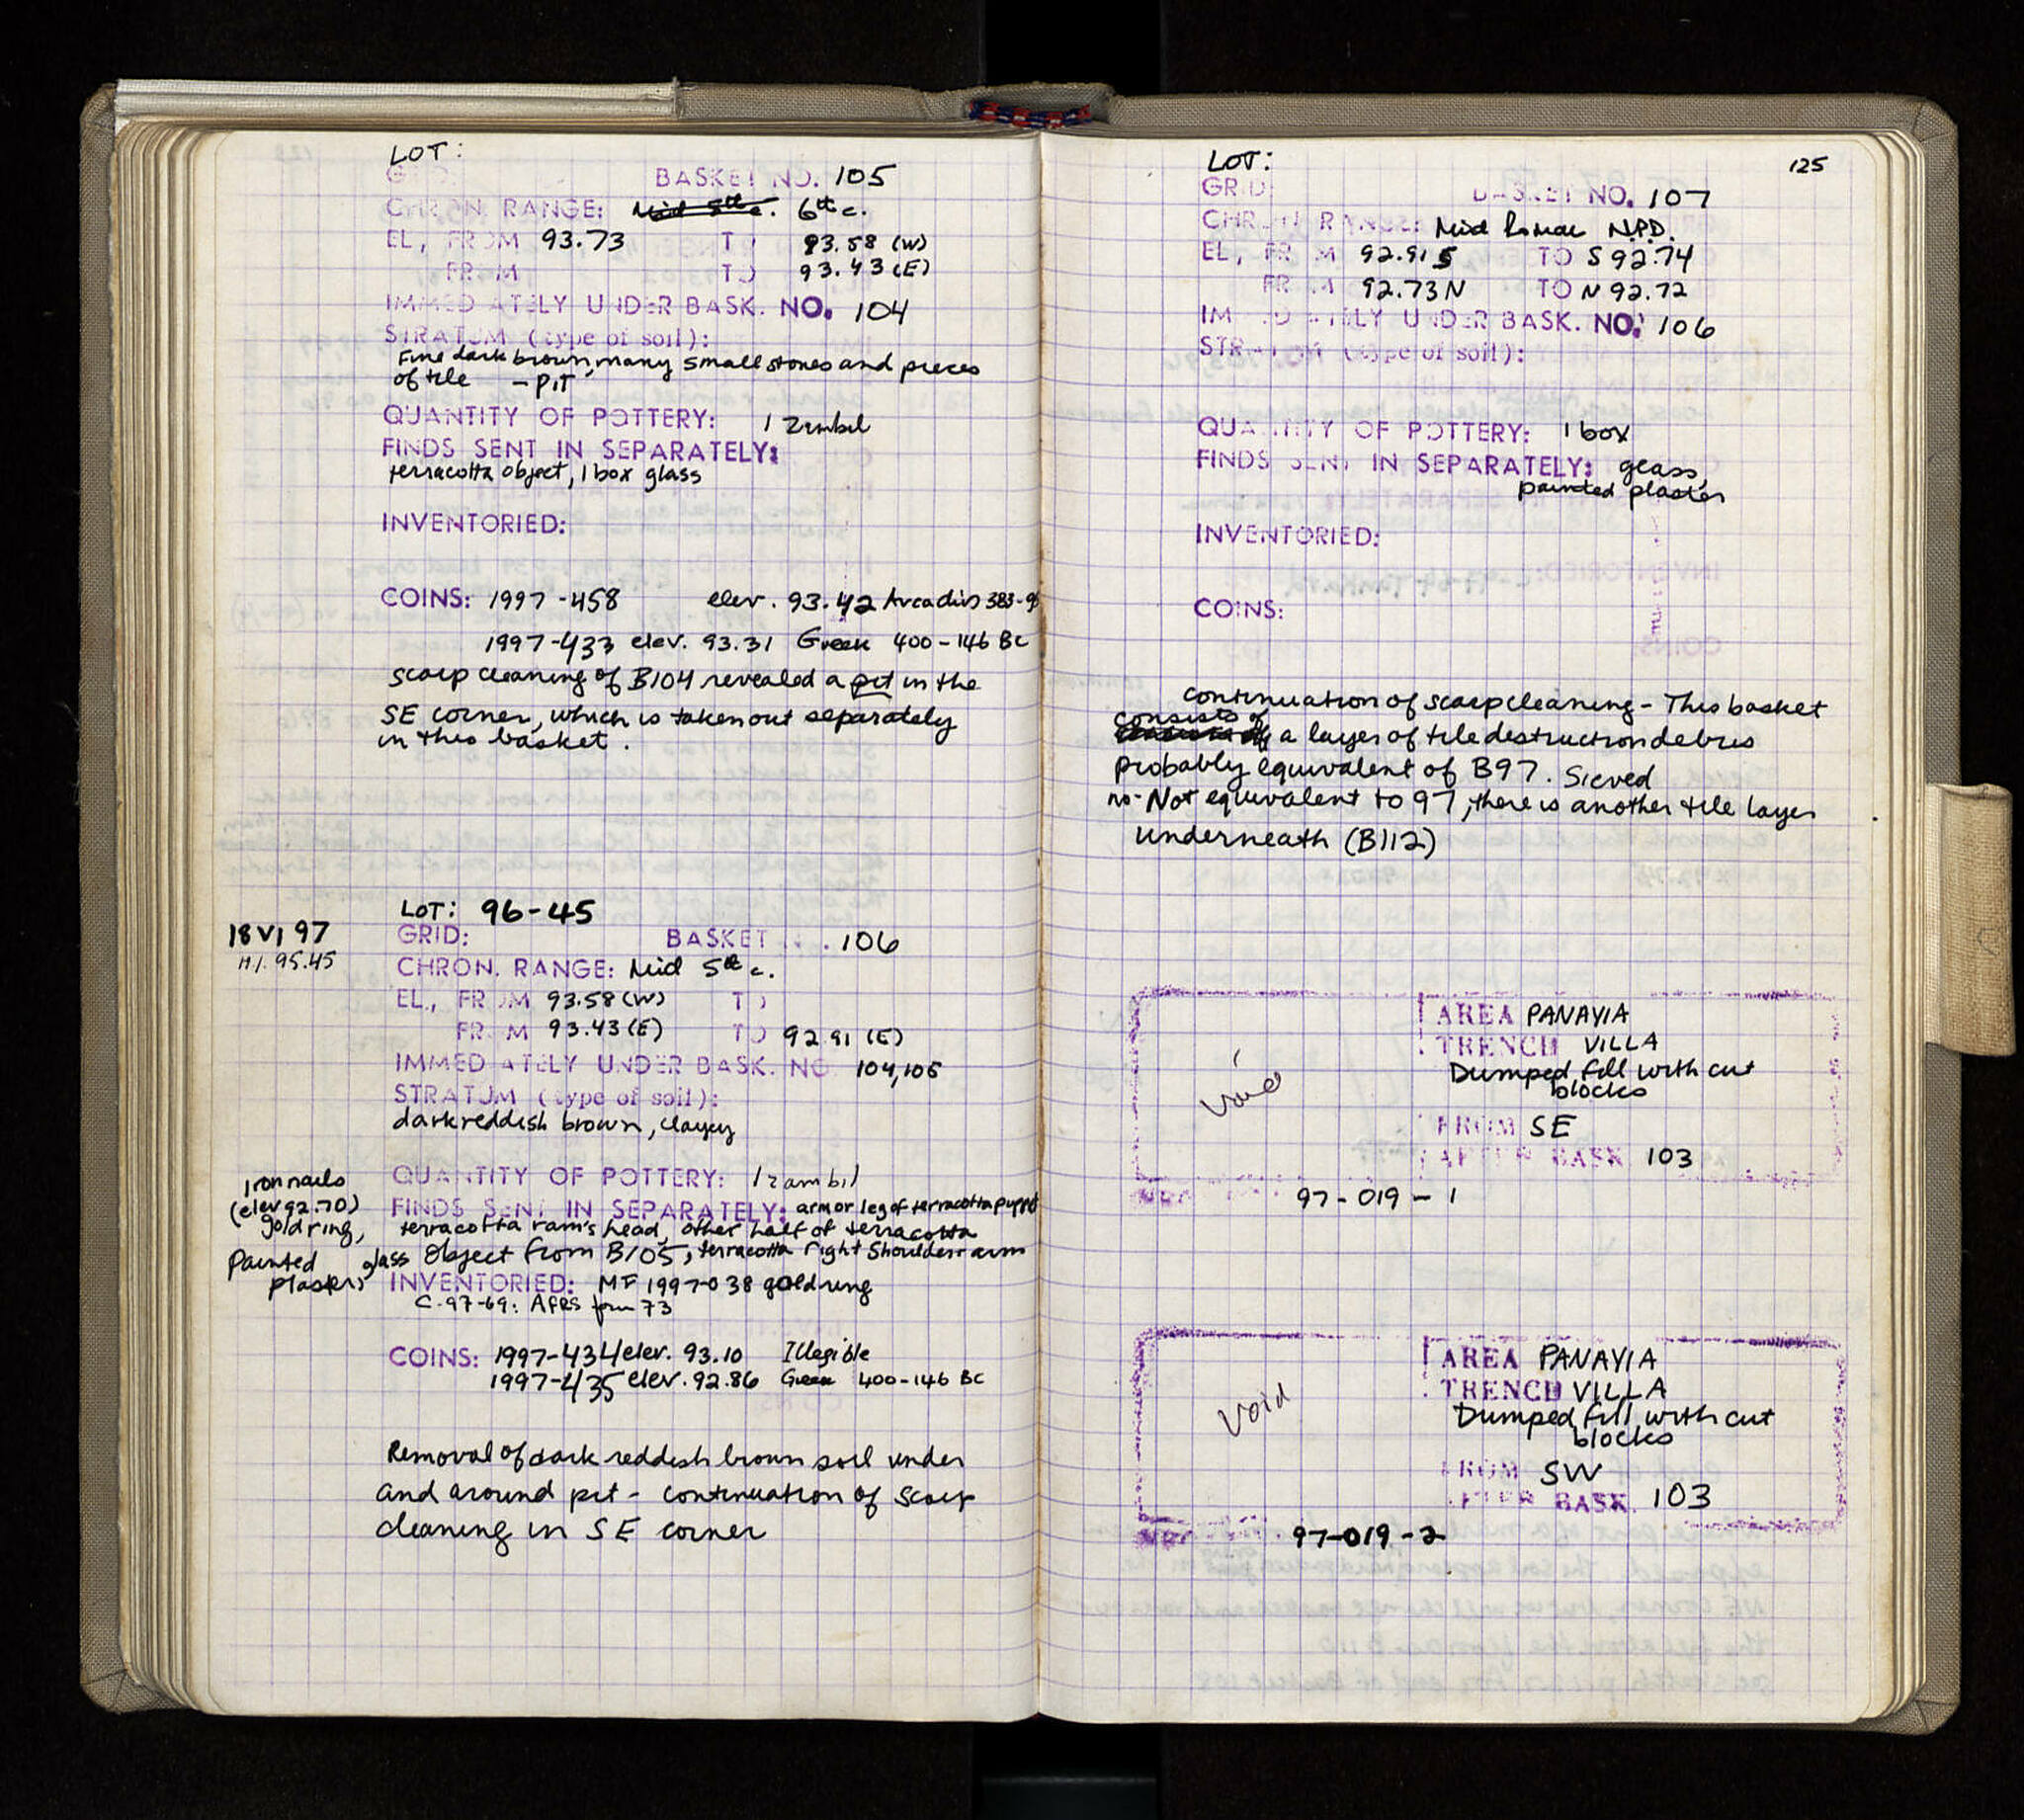 LOT:
GRID: BASKET NO. 105
CHRON. RANGE: Mid 5th c. 6th c.
EL, FROM 93.73 TO 93.58 (W)
FROM TO 93.43 (E)
IMMEDIATELY UNDER BASK. NO. 104
STRATUM (type of soil):
Fine dark brown, many small stones and pieces
of tile - PIT
QUANTITY OF POTTERY: 1 zembil
FINDS SENT IN SEPARATELY:
terracotta object, 1 box glass
INVENTORIED:
COINS: 1997-458 elev. 93.42 Arcadius 383-
1997-433 elev. 93.31 Greek 400-146 BC
scarp cleaning of B104 revealed a pit in the
SE corner, which is taken out separately
in this basket.
18 VI 97
H.I. 95.45
LOT: 96-45
GRID: BASKET NO. 106
CHRON. RANGE: Mid 5th c.
EL., FROM 93.58 (W) TO
FROM 93.43 (E) TO 92.91 (E)
IMMEDIATELY UNDER BASK. NO. 104, 105
STRATUM (type of soil):
dark reddish brown, clayey
QUANTITY OF POTTERY: 1 zambil
FINDS SENT IN SEPARATELY: arm or leg of terracotta puppet
terracotta ram's head, other half of terracotta
object from B105, terracotta right shoulder+arm
Iron nails
(elev 92.70)
gold ring,
Painted
plaster,
glass
INVENTORIED: MF 1997-038 gold ring
C-97-69: AfRS form 73
COINS: 1997-434 elev. 93.10 Illegible
1997-435 elev. 92.86 Greek 400-146 BC
Removal of dark reddish brown soil under
and around pit - continuation of scarp
cleaning in SE corner
125
LOT:
GRID: BASKET NO. 107
CHRON. RANGE: Mid Roman N.P.D.
EL, FROM 92.91 S TO S 92.74
FROM 92.73 N TO N 92.72
IMMEDIATELY UNDER BASK. NO. 106
STRATUM (type of soil):
QUANTITY OF POTTERY: 1 box
FINDS SENT IN SEPARATELY: glass,
painted plaster
INVENTORIED:
COINS:
continuation of scarp cleaning - This basket
consists of a layer of tile destruction debris
probably equivalent of B97. Sieved
no- Not equivalent to 97, there is another tile layer
underneath (B112)
void
AREA PANAYIA
TRENCH VILLA
Dumped fill with cut
blocks
FROM SE
AFTER BASK 103
97-019-1
void
AREA PANAYIA
TRENCH VILLA
Dumped fill with cut
blocks
FROM SW
AFTER BASK. 103
97-019-2